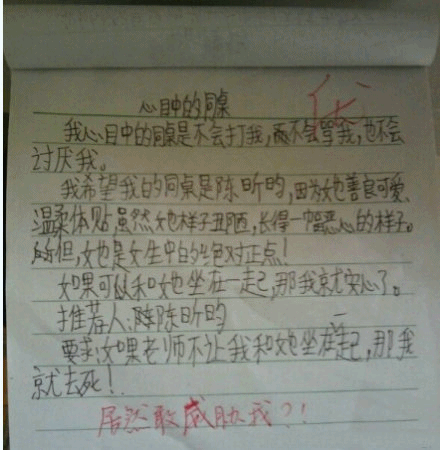 心目中的同桌
我心目中的同桌是不会打我,不会骂我,也不会
讨厌我。
我希望我的同桌是陈昕昀,因为她善良可爱、
温柔体贴,虽然她样子丑陋,长得一幅恶心的样子。
但,她是女生中的绝对正点!
如果可以和她坐在一起,那我就安心了。
推荐人:陈昕昀
要求:如果老师不让我和她坐在一起,那我
就去死!
居然敢威胁我?!